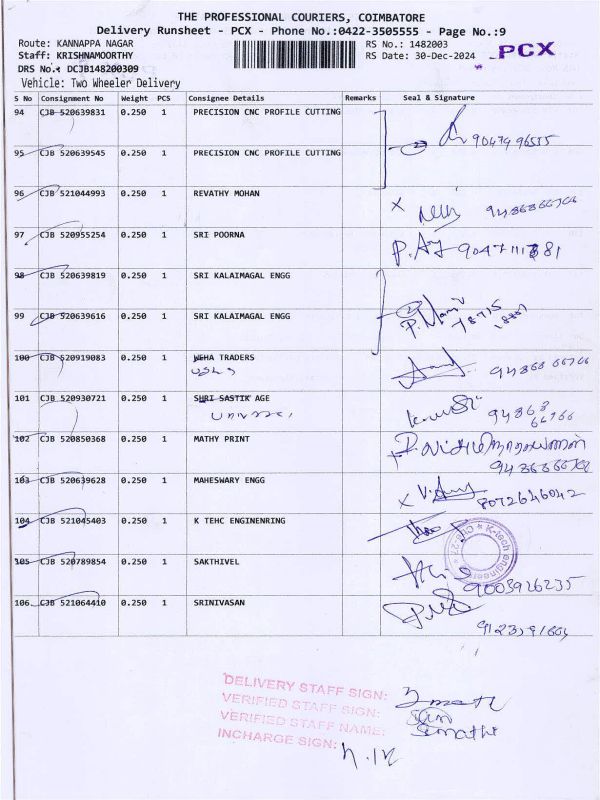 THE PROFESSIONAL COURIERS, COIMBATORE
Delivery Runsheet - PCX - Phone No.:0422-3505555 - Page No.:9
Route: KANNAPPA NAGAR RS No.: 1482003
Staff: KRISHNAMOORTHY RS Date: 30-Dec-2024 PCX
DRS No.: DCJB148200309
Vehicle: Two Wheeler Delivery
S No Consignment No Weight PCS Consignee Details Remarks Seal & Signature
94 CJB 520639831 0.250 1 PRECISION CNC PROFILE CUTTING
95 CJB 520639545 0.250 1 PRECISION CNC PROFILE CUTTING
96 CJB 521044993 0.250 1 REVATHY MOHAN
97 CJB 520955254 0.250 1 SRI POORNA
98 CJB 520639819 0.250 1 SRI KALAIMAGAL ENGG
99 CJB 520639616 0.250 1 SRI KALAIMAGAL ENGG
100 CJB 520919083 0.250 1 NEHA TRADERS
101 CJB 520930721 0.250 1 SHRI SASTIK AGE
102 CJB 520850368 0.250 1 MATHY PRINT
103 CJB 520639628 0.250 1 MAHESWARY ENGG 8072646042
104 CJB 521045403 0.250 1 K TEHC ENGINENRING
105 CJB 520789854 0.250 1 SAKTHIVEL 9003926235
106 CJB 521064410 0.250 1 SRINIVASAN
DELIVERY STAFF SIGN:
VERIFIED STAFF SIGN:
VERIFIED STAFF NAME:
INCHARGE SIGN: